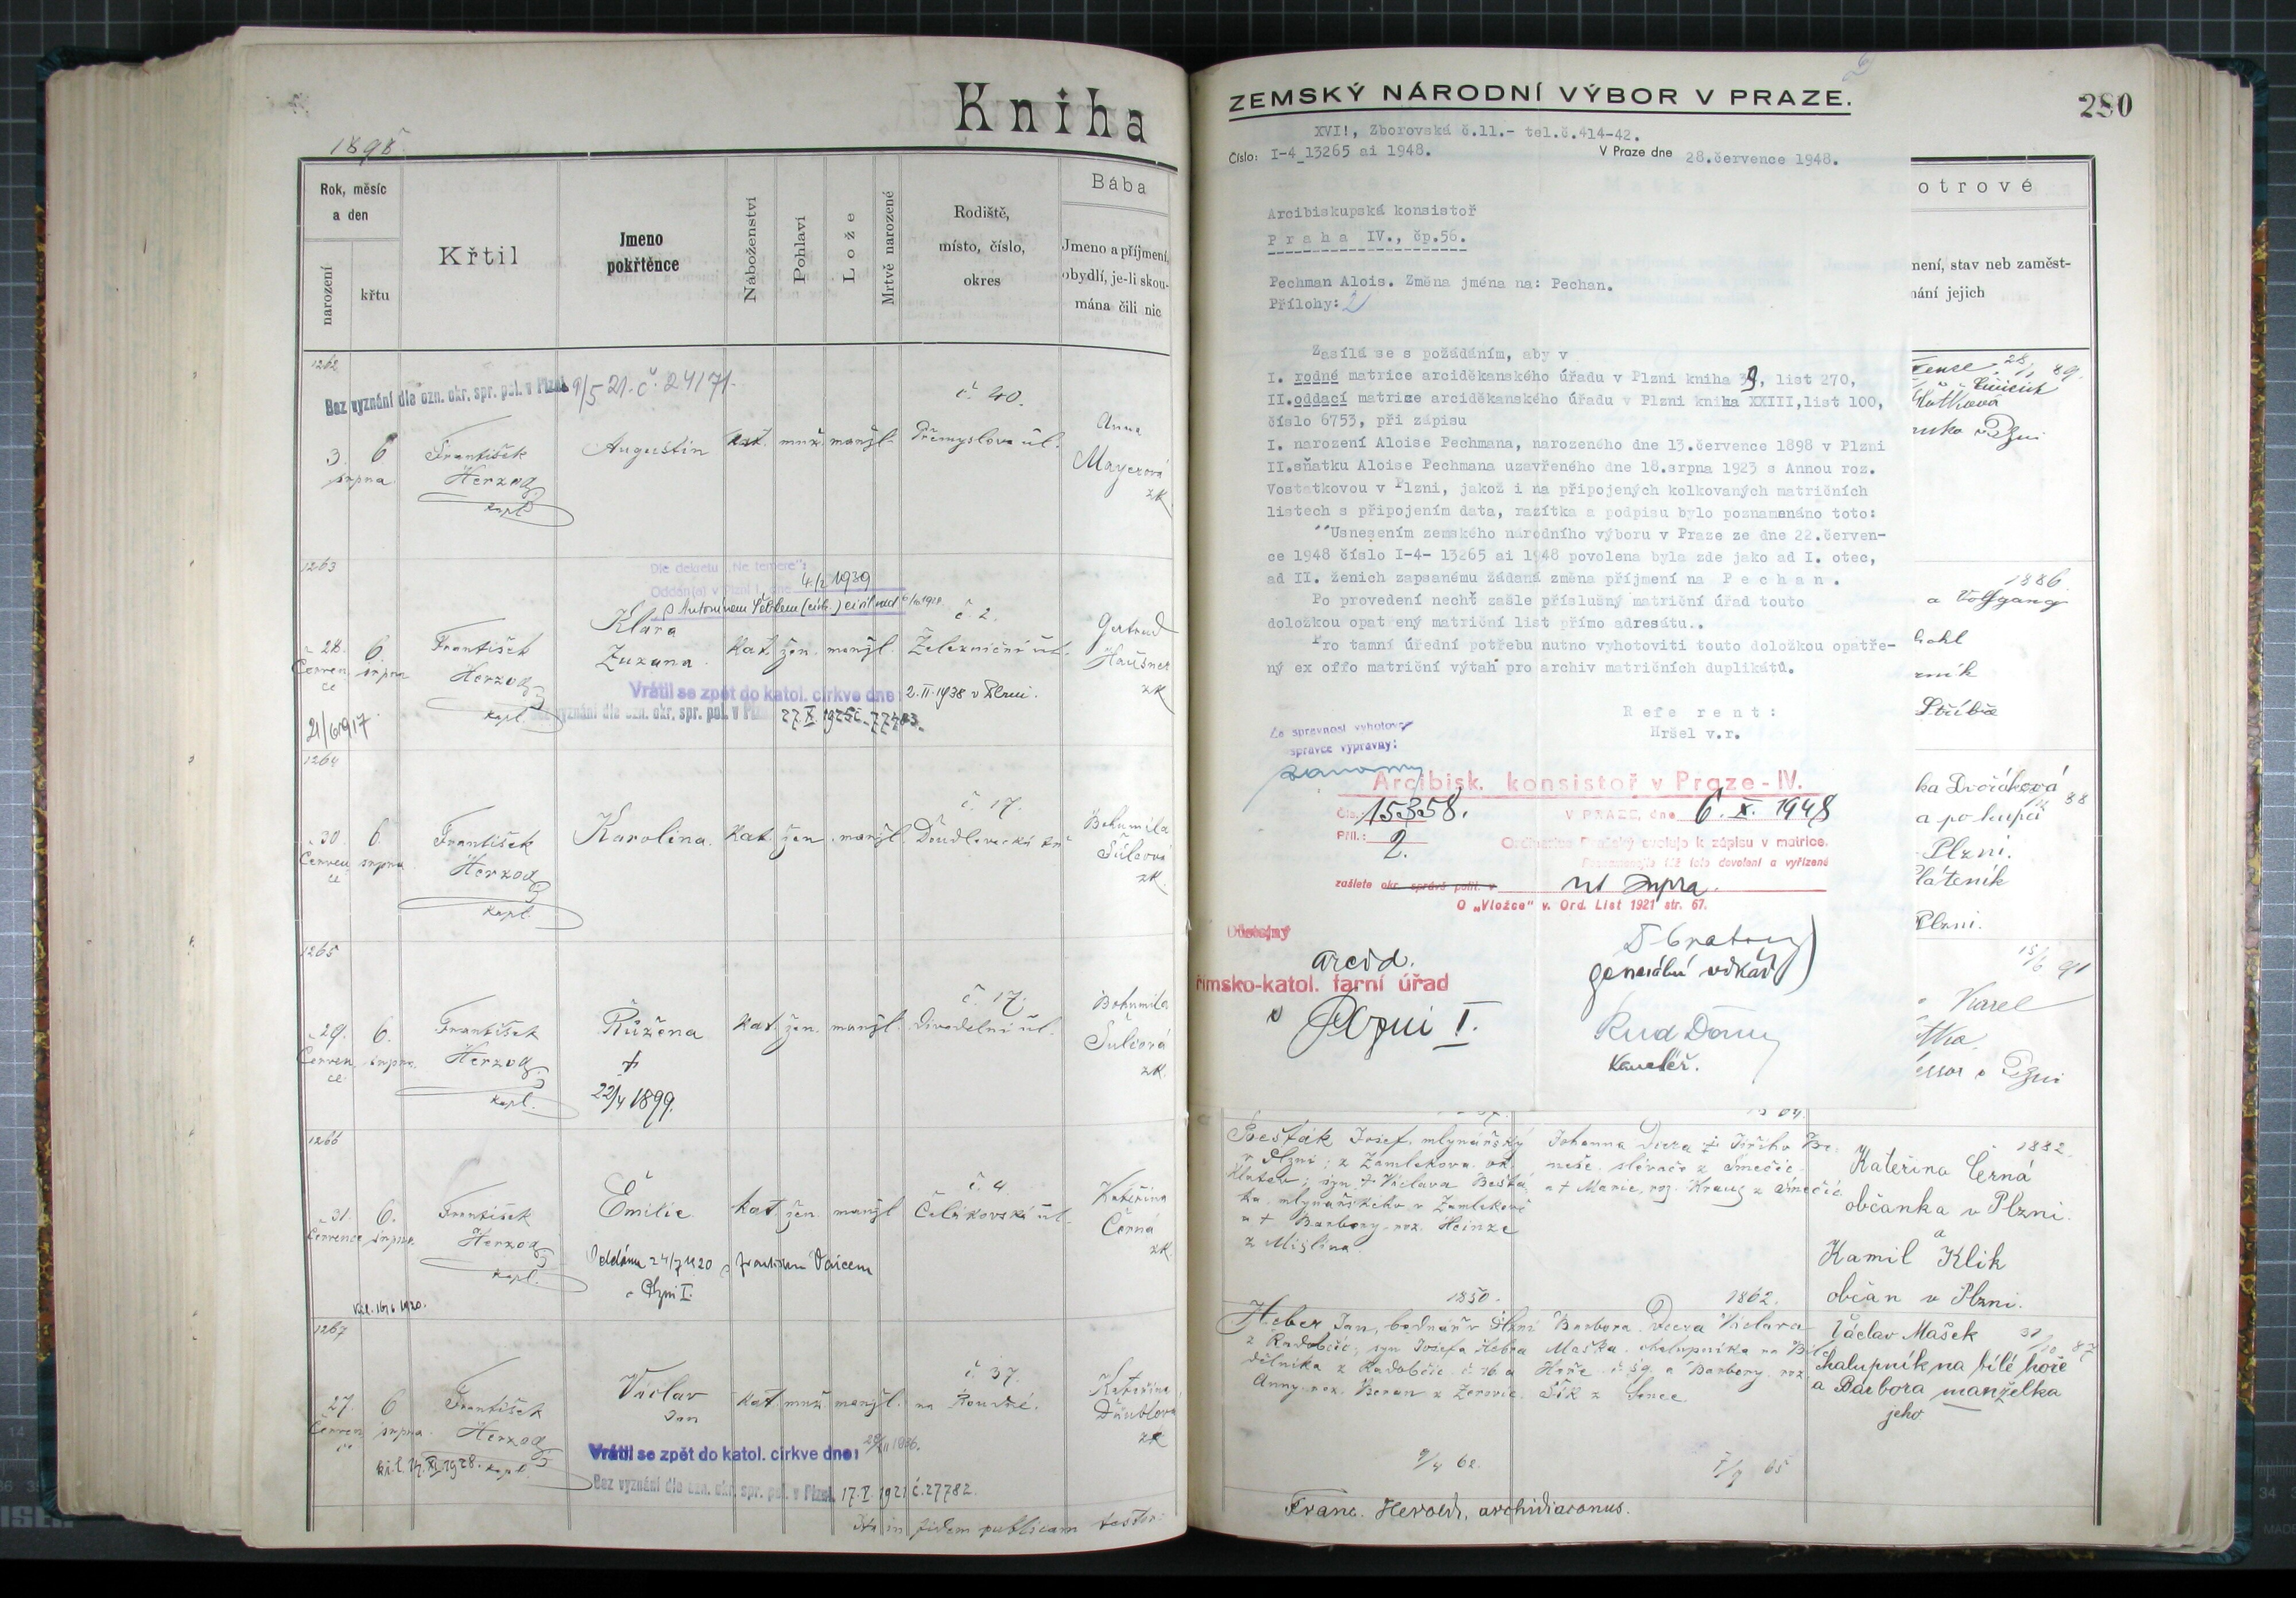 Kniha
1898
Rok, měsíc
a den
narození
křtu
Křtil
Jmeno
pokřtěnce
Náboženství
Pohlaví
Lože
Mrtvě narozené
Rodiště,
místo, číslo,
okres
Bába
Jmeno a příjmení,
obydlí, je-li skou-
mána čili nic
1262
Bez vyznání dle ozn. okr. spr. pol. v Plzni 9/5 21. č. 24171.
č. 40.
3. 6 František Augustin kat. muž. manžl. Přemyslova ul. Anna
srpna Herzog Mayerová
kapl. zk
1263
Dle dekretu „Ne temere":
Oddán(a) v Plzni I. dne 4/2 1939
č. 2.
28. 6 František Klara kat. žen. manžl. Železniční ul. Gertrud
Červen srpna Herzog Zuzana Haušner
ce kapl. zk
Vrátil se zpět do katol. církve dne: 2. II. 1938 v Plzni.
Bez vyznání dle ozn. okr. spr. pol. v Plzni 27. X. 1925 č. 77483.
21/6 1917
1264
č. 17.
30 6. František Karolina. kat. žen. manžl. Doudlevecká Bohumila
Červen srpna Herzog Šulcová
ce kapl. zk.
1265
č. 17.
29. 6. František Růžena kat. žen. manžl. Divadelní ul. Bohumila
Červen srpna. Herzog † Šulcová
ce kapl. 22/4 1899. zk.
1266
č. 4
31. 6. František Emilie kat. žen. manžl. Čelakovská ul. Kateřina
Července srpna Herzog Černá
kapl. zk
Oddána 24/7 1920 s Františkem
v Plzni I.
1267
č. 37.
27. 6 František Václav kat. muž. manžl. na Roudné. Kateřina
Červen srpna Herzog Jan
ce kapl. zk
Vrátil se zpět do katol. církve dne:
Bez vyznání dle ozn. okr. spr. pol. v Plzni 17. V. 1921 č. 27782.
Ita in fidem publicam testor:
280
ZEMSKÝ NÁRODNÍ VÝBOR V PRAZE.
XVI!, Zborovská č.11.- tel.č.414-42.
Číslo: I-4_13265 ai 1948. V Praze dne 28.července 1948.
Arcibiskupská konsistoř
Praha IV., čp.56.
Pechman Alois. Změna jména na: Pechan.
Přílohy: 2
Zasílá se s požádáním, aby v
I. rodné matrice arciděkanského úřadu v Plzni kniha 39, list 270,
II.oddací matrice arciděkanského úřadu v Plzni kniha XXIII,list 100,
číslo 6753, při zápisu
I. narození Aloise Pechmana, narozeného dne 13.července 1898 v Plzni
II.sňatku Aloise Pechmana uzavřeného dne 18.srpna 1923 s Annou roz.
Vostatkovou v Plzni, jakož i na připojených kolkovaných matričních
listech s připojením data, razítka a podpisu bylo poznamenáno toto:
"Usnesením zemského národního výboru v Praze ze dne 22.červen-
ce 1948 číslo I-4- 13265 ai 1948 povolena byla zde jako ad I. otec,
ad II. ženich zapsanému žádaná změna příjmení na Pechan.
Po provedení nechť zašle příslušný matriční úřad touto
doložkou opatřený matriční list přímo adresátu..
Pro tamní úřední potřebu nutno vyhotoviti touto doložkou opatře-
ný ex offo matriční výtah pro archiv matričních duplikátů.
Referent:
Hršel v.r.
Za správnost vyhotovení
správce výpravny:
Arcibisk. konsistoř v Praze - IV.
Čís. 15358. V PRAZE, dne 6. X. 1948
Příl.: 2.
Ordinariát Pražský svoluje k zápisu v matrice.
Poznamenejte též toto dovolení a vyřízené
zašlete okr. správě polit. v ut supra.
O „Vložce" v. Ord. List 1921 str. 67.
Důstojný
arcid.
římsko-katol. farní úřad
v Plzni I.
generální vikář
kancléř.
otrové
mení, stav neb zaměst-
nání jejich
1886
a Wolfgang
ka Dvořáková
a po kupci
Plzni.
Plzni.
Karel
Bešták Josef, mlynářský Johanna dcera † Jiřího Be- 1882.
v Plzni; z Zamlekova ok. neše, slévače z Smečic Kateřina Černá
Klatov; syn † Václava Bešťá a † Marie, roz. Kraus z Smečic občanka v Plzni.
ka mlynářského v Zamlekově a
a † Barbory roz. Heinze Kamil Klik
z Mišlína. občan v Plzni.
1850. 1862.
Heber Jan, bednář v Plzni Barbora, dcera Václava Václav Mašek 31/10 87
z Radobčic, syn Josefa Hebra Maška, chalupníka na Bílé chalupník na bílé hoře
dělníka z Radobčic č. 16 a Hoře č. 59 a Barbory roz. a Barbora manželka
Anny roz. Beran z Žerovic. Šik z Senec. jeho
9/4 62. 7/9 65
Franc. Herold, archidiaconus.